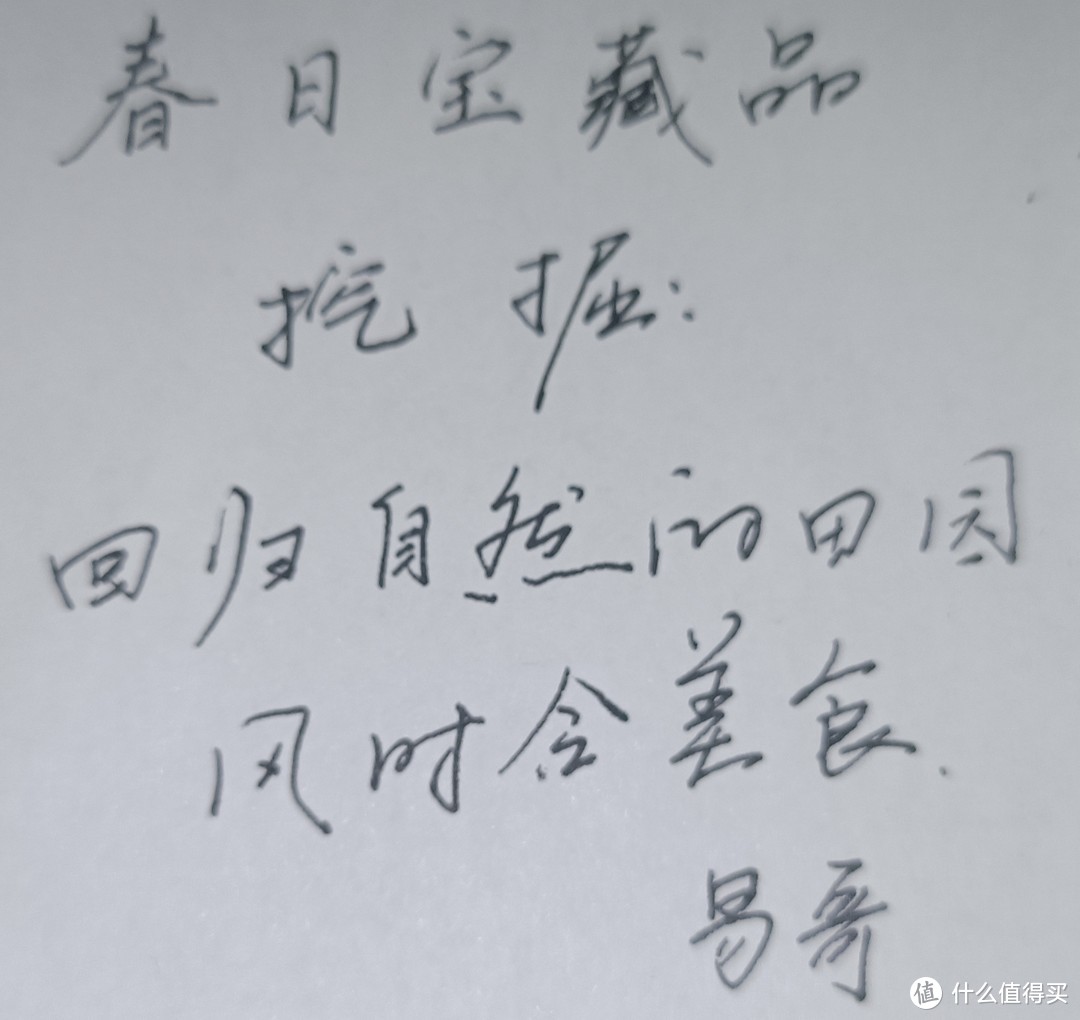 春日宝藏品
挖掘:
回归自然的田园
风时令美食.
易哥
值 什么值得买